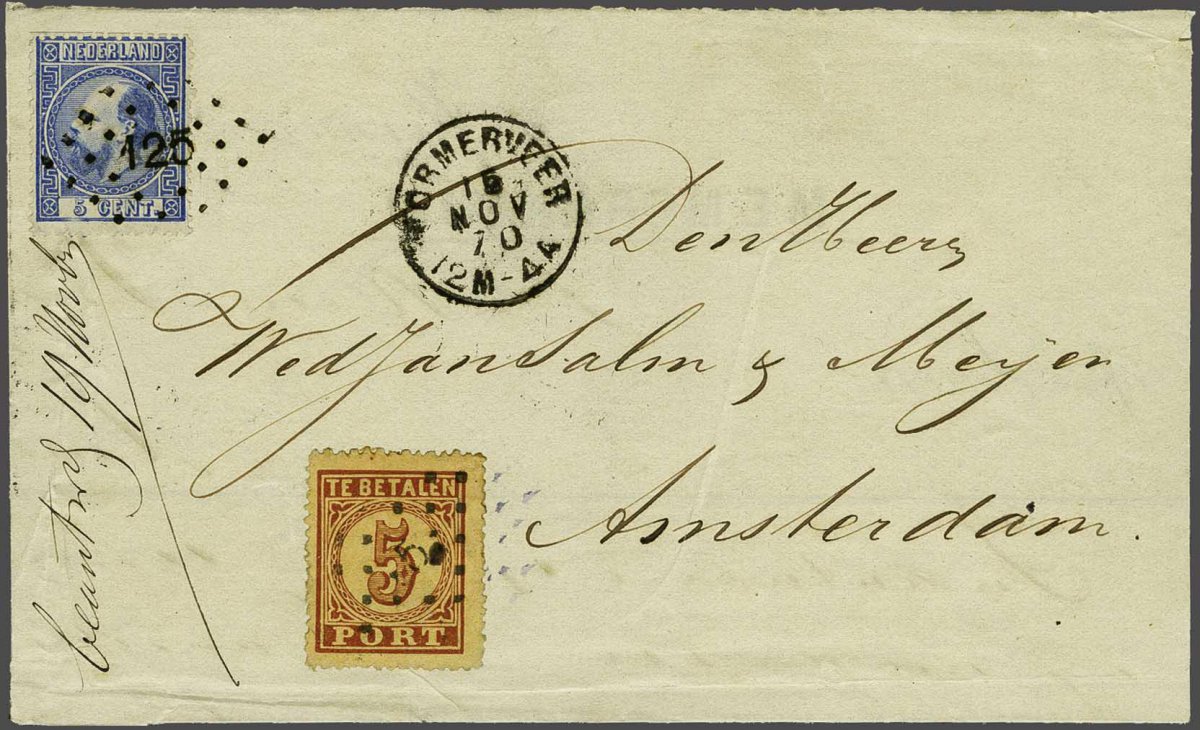 NEDERLAND
125
5 CENT.
WORMERVEER
15
NOV
70
12M-4A
Den Heeren
Wed Jan Salm & Meyer
Amsterdam.
TE BETALEN
5
PORT
19 Novb